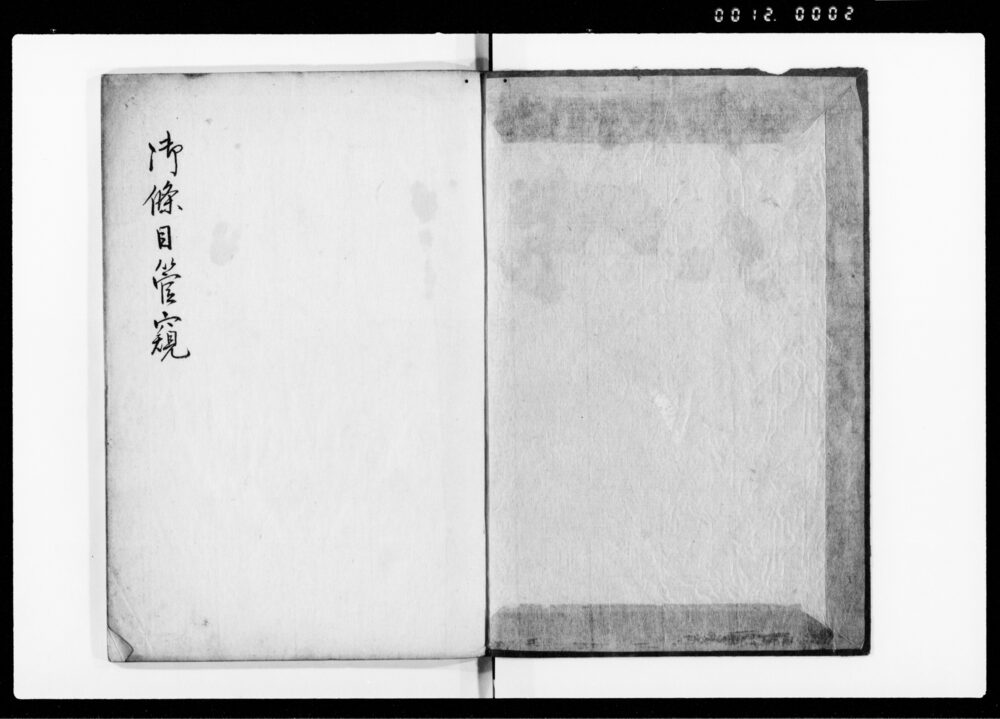 0012.0002
御條目管窺